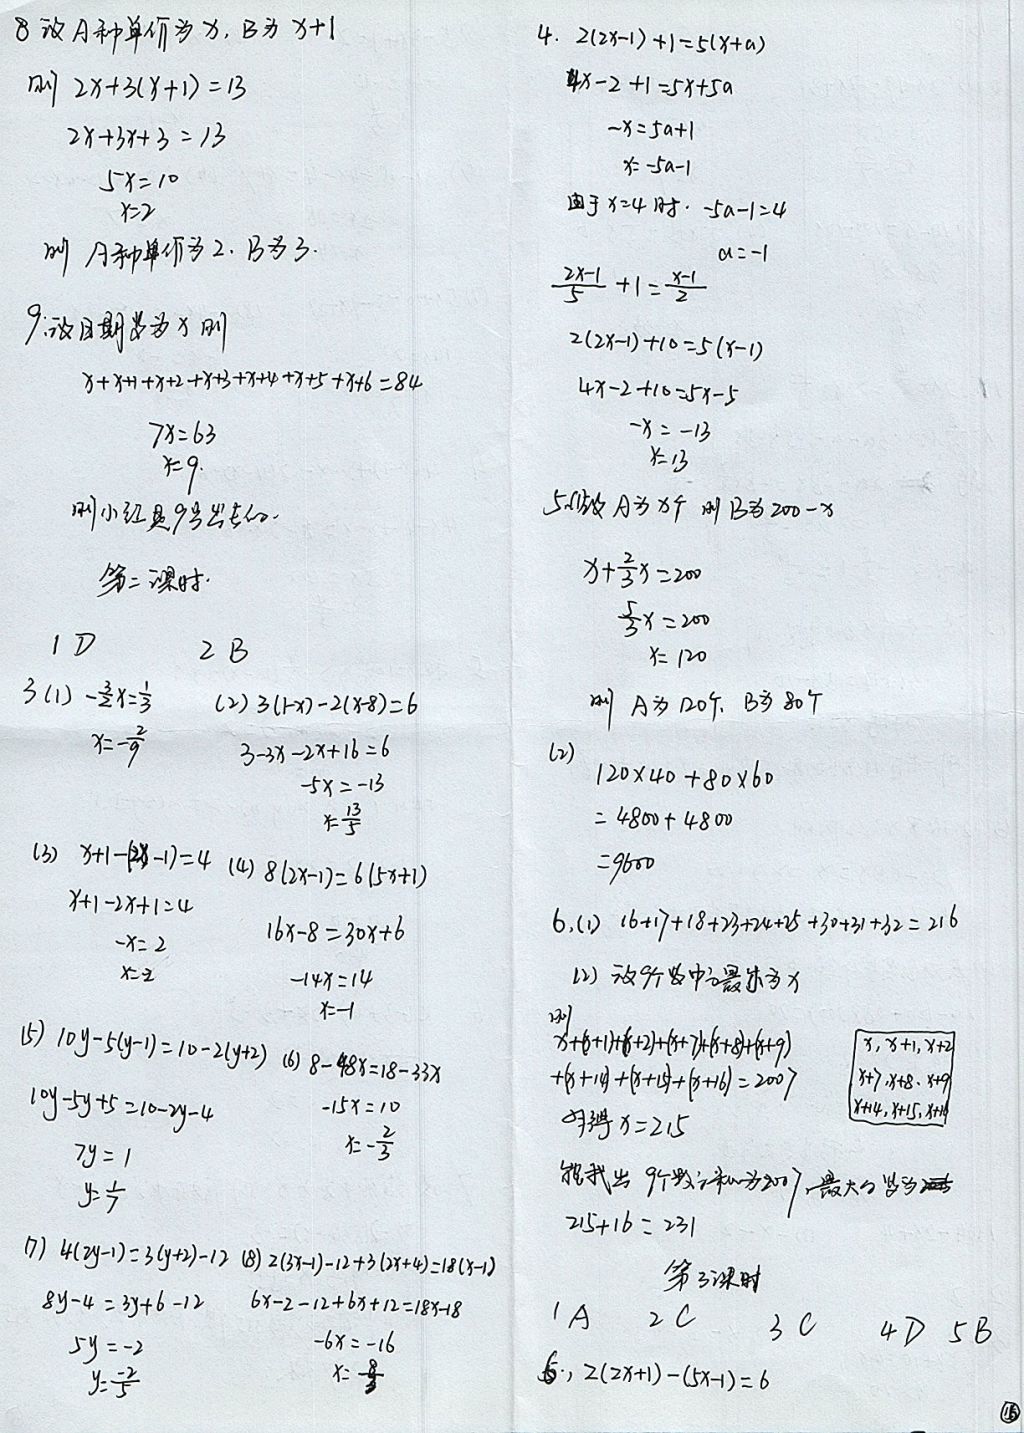 8 设A种单价为x, B为 x+1
则 2x+3(x+1)=13
2x+3x+3=13
5x=10
x=2
则 A种单价为2. B为3.
9.设日期首为x 则
x+x+1+x+2+x+3+x+4+x+5+x+6=84
7x=63
x=9.
则小红是9号出去的.
第二课时.
1 D 2 B
3(1) -3/2x=1/3
x=-2/9
(2) 3(1-x)-2(x-8)=6
3-3x-2x+16=6
-5x=-13
x=13/5
(3) x+1-(2x-1)=4
x+1-2x+1=4
-x=2
x=-2
(4) 8(2x-1)=6(5x+1)
16x-8=30x+6
-14x=14
x=-1
(5) 10y-5(y-1)=10-2(y+2)
10y-5y+5=10-2y-4
7y=1
y=1/7
(6) 8-48x=18-33x
-15x=10
x=-2/3
(7) 4(2y-1)=3(y+2)-12
8y-4=3y+6-12
5y=-2
y=-2/5
(8) 2(3x-1)-12+3(2x+4)=18(x-1)
6x-2-12+6x+12=18x-18
-6x=-16
x=8/3
4. 2(2x-1)+1=5(x+a)
4x-2+1=5x+5a
-x=5a+1
x=-5a-1
由于x=4时. -5a-1=4
a=-1
(2x-1)/5+1=(x-1)/2
2(2x-1)+10=5(x-1)
4x-2+10=5x-5
-x=-13
x=13
5.(1)设A为x个 则B为200-x
x+2/3x=200
5/3x=200
x=120
则 A为120个. B为80个
(2)
120×40+80×60
=4800+4800
=9600
6.(1) 16+17+18+23+24+25+30+31+32=216
(2) 设9个数中最小为x
则
x+(x+1)+(x+2)+(x+7)+(x+8)+(x+9)
+(x+14)+(x+15)+(x+16)=2007
x, x+1, x+2
x+7, x+8. x+9
x+14, x+15, x+16
解得x=215
能找出 9个数之和为2007,最大的数为
215+16=231
第3课时
1 A 2 C 3 C 4 D 5 B
6., 2(2x+1)-(5x-1)=6
16